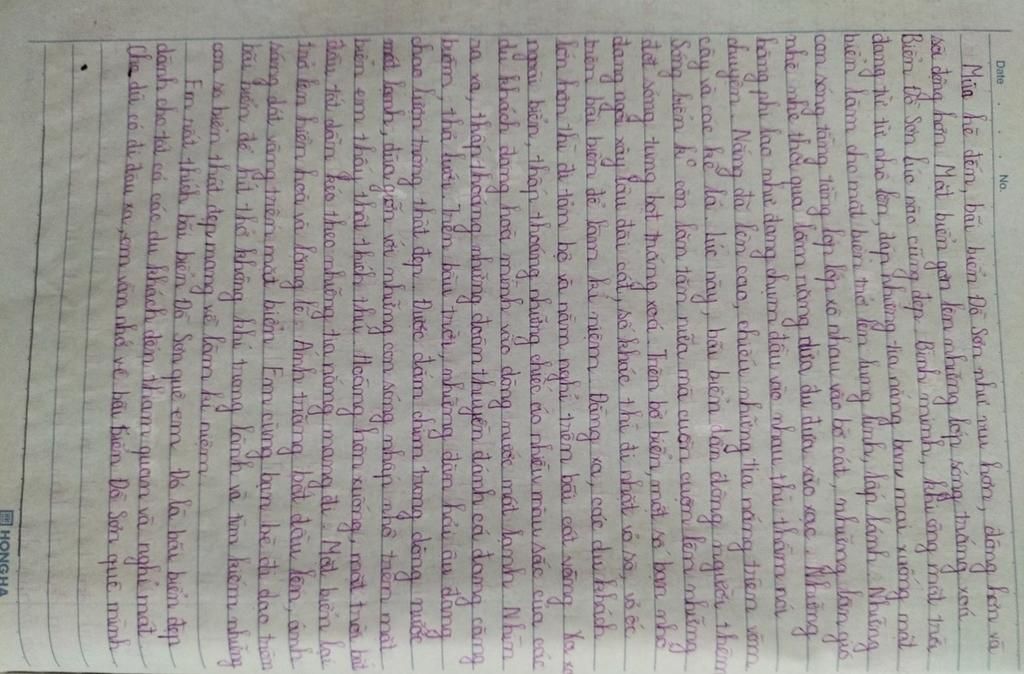 Date No.
Mùa hè đến, bãi biển Đồ Sơn như vui hơn, đông hơn và
sôi động hơn. Mặt biển gợn lên những lớp sóng trắng xoá
Biển Đồ Sơn lúc nào cũng đẹp. Bình minh, khi ông mặt trời
đang từ từ nhô lên, rắp những tia nắng ban mai xuống mặt
biển làm cho mặt biển trở lên lung linh, lấp lánh. Những
con sóng tầng tầng lớp lớp xô nhau vào bờ cát, những làn gió
nhè nhẹ thổi qua làm rừng dừa đu đưa xào xạc. Những
hàng phi lao như đang chụm đầu vào nhau thì thầm nói
chuyện. Nắng đã lên cao, chiếu những tia nắng trên vòm
cây và các kẽ lá. Lúc này, bãi biển dần đông người thêm
Sóng biển kì còn lăn tăn nữa mà cuồn cuộn lên những
đợt sóng tung bọt trắng xoá. Trên bờ biển, một số bạn nhỏ
đang ngồi xây lâu đài cát, số khác thì đi nhặt vỏ sò, vỏ ốc
trên bãi biển để làm kỉ niệm. Đằng xa, các du khách
lớn hơn thì đi tản bộ và nằm nghỉ trên bãi cát vàng. Xa xa
ngoài biển, thấp thoáng những chiếc áo nhiều màu sắc của các
du khách đang hoà mình vào dòng nước mát lạnh. Nhìn
ra xa, thấp thoáng những đoàn thuyền đánh cá đang căng
buồm, thả lưới. Trên bầu trời, những đàn hải âu đang
chao lượn trông thật đẹp. Được đắm chìm trong dòng nước
mát lạnh, đùa giỡn với những con sóng nhấp nhô trên mặt
biển em thấy thật thích thú. Hoàng hôn xuống, mặt trời bắt
đầu tắt dần kéo theo những tia nắng mang đi. Mặt biển lại
trở lên hiền hoà và lặng lẽ. Ánh trăng bắt đầu lên, ánh
sáng dát vàng trên mặt biển. Em cùng bạn bè đi dạo trên
bãi biển để hít thở không khí trong lành và tìm kiếm những
con sò biển thật đẹp mang về làm kỉ niệm.
Em rất thích bãi biển Đồ Sơn quê em. Đó là bãi biển đẹp
dành cho tất cả các du khách đến tham quan và nghỉ mát.
Cho dù có đi đâu xa, em vẫn nhớ về bãi biển Đồ Sơn quê mình
HONG HA